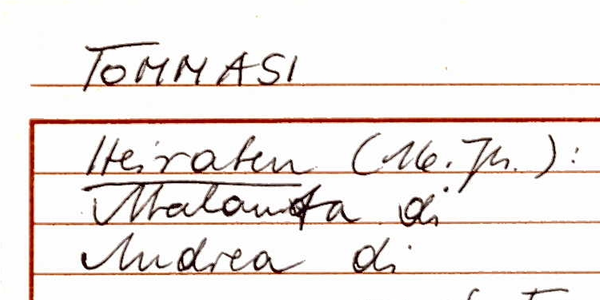 TOMMASI
Heiraten (16. Jh.):
di
Andrea di